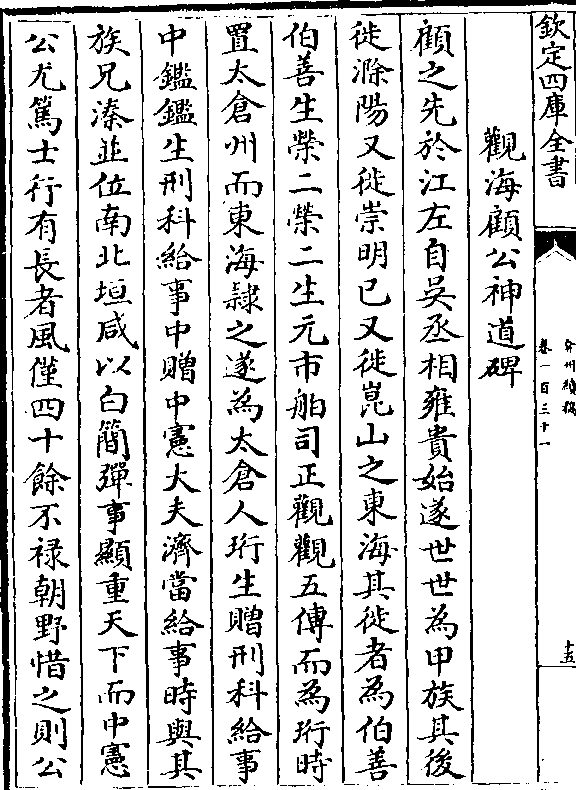 欽定四庫全書
弇州續稿
卷一百三十一
十五
觀海顧公神道碑
顧之先於江左自吳丞相雍貴始遂世世為甲族其後
徙滁陽又徙崇明已又徙崑山之東海其徙者為伯善
伯善生榮二榮二生元市舶司正觀觀五傳而為珩時
置太倉州而東海隸之遂為太倉人珩生贈刑科給事
中鑑鑑生刑科給事中贈中憲大夫濟當給事時與其
族兄溱並位南北垣咸以白簡彈事顯重天下而中憲
公尤篤士行有長者風僅四十餘不祿朝野惜之則公